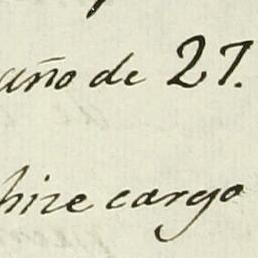 año de 27.
hize cargo